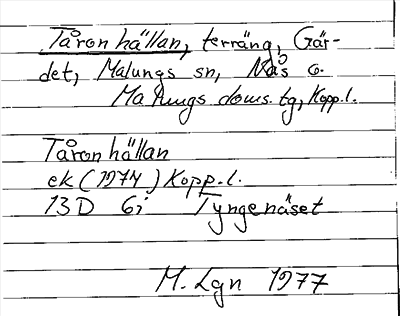 Tåronhällan, terräng, Gär-
det, Malungs sn, Nås o.
Malungs doms.tg, Kopp.l.
Tåronhällan
ek (1974) Kopp.l.
13D 6i Tyngenäset
M. Lgn 1977